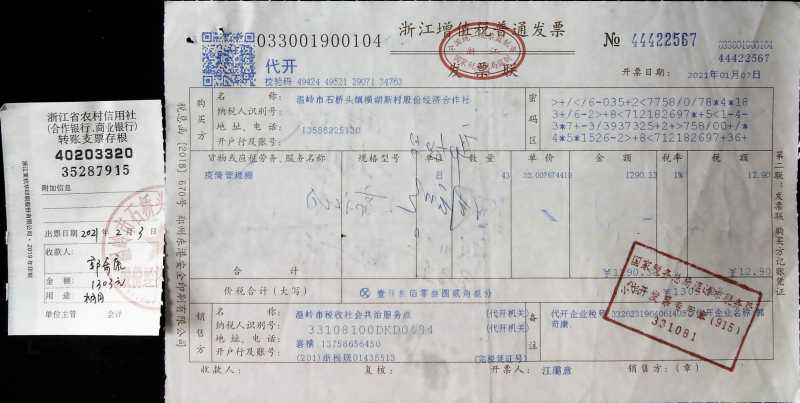 浙江省农村信用社
(合作银行、商业银行)
转账支票存根
40203320
35287915
附加信息
出票日期 2021年2月3日
收款人:
金额: 1303元
用途:
单位主管 会计
033001900104
浙江增值税普通发票
发票联
№ 44422567
033001900104
44422567
代开
校验码 49424 49521 29071 34763
开票日期: 2021年01月07日
购买方
名称: 温岭市石桥头镇横湖新村股份经济合作社
纳税人识别号:
地址、电话: 13586225130
开户行及账号:
密码区
>+/</6-035+2<7758/0/78*4*18
3+/6-2>+8<712182697*+5<1-4-
3*7+-3/3937325+2+>758/00+/*
4*5*1526-2>+8<712182697+36+
货物或应税劳务、服务名称 规格型号 单位 数量 单价 金额 税率 税额
疫情管理棚 43 1290.33 1% 12.90
合计 ¥1290.33 ¥12.90
价税合计(大写) ⊗壹仟叁佰零叁圆贰角叁分
销售方
名称: 温岭市税收社会共治服务点 (代开机关)
纳税人识别号: 33108100DKD0494 (代开机关)
地址、电话: 13758656450
开户行及账号: (201)浙税现01435513 (完税凭证号)
备注
代开企业税号: 代开企业名称:郭奇康
收款人: 复核: 开票人: 销售方:(章)
第二联:发票联 购买方记账凭证
国家税务总局温岭市税务局
代开发票专用章(915)
331081